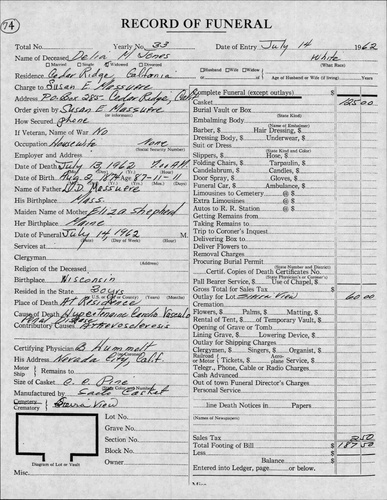 74
RECORD OF FUNERAL
Total No. Yearly No. 33 Date of Entry July 14 1962
Name of Deceased Delia M Jones White
Married Single Widowed Divorced (What Race)
Residence Cedar Ridge, Husband Wife Widow Age of Husband or Wife (if living) Years
Charge to Susan E Massure
Address P.O. Box 285 Cedar Ridge, Calif
Order given by Susan E Massure
(or informant)
How Secured phone
If Veteran, Name of War No
Occupation Housewife None
(Social Security Number)
Employer and Address
Date of Death July 13, 1962
Date of Birth Aug. 2, 1874 87-11-11
Name of Father
His Birthplace Mass.
Maiden Name of Mother Eliza Shepherd
Her Birthplace Maine
Date of Funeral July 14, 1962
(Date) (Day of Week) (Hour)
Services at
Clergyman
Religion of the Deceased
Birthplace Wisconsin
Resided in the State 30 yrs
U.S. or City or County (Years) (Months)
Place of Death At Residence
Cause of Death Hypertensive
Contributory Causes Arterosclerosis
Certifying Physician B. Hummelt
His Address Nevada City, Calif.
Motor Ship Remains to
Size of Casket Pine
(State Color and Number)
Manufactured by Casket
Cemetery
Crematory View
Lot No.
Grave No.
Section No.
Block No.
Owner
Diagram of Lot or Vault
Misc.
Complete Funeral (except outlays) $
Casket 125.00
Burial Vault or Box
(State Kind)
Embalming Body
Barber, $ Hair Dressing, $
Dressing Body, $ Underwear, $
Suit or Dress
(State Kind and Color)
Slippers, $ Hose, $
Folding Chairs, $ Tarpaulin, $
Candelabrum, $ Candles, $
Door Spray, $ Gloves, $
Funeral Car, $ Ambulance, $
Limousines to Cemetery @ $
Extra Limousines @ $
Autos to R. R. Station @ $
Getting Remains from
Taking Remains to
Trip to Coroner's Inquest
Delivering Box to
Deliver Flowers to
Removal Charges
Procuring Burial Permit
(State Number and District)
Certif. Copies of Death Certificates No.
(State Physician's or Coroner's)
Pall Bearer Service, $ Use of Chapel, $
Gross Total for Sales Tax $
Outlay for Lot View 60.00
Cremation
Flowers, $ Palms, $ Matting, $
Rental of Tent, $ of Temporary Vault, $
Opening of Grave or Tomb
Lining Grave, $ Lowering Device, $
Outlay for Shipping Charges
Clergymen, $ Singers, $ Organist, $
Railroad or Motor Tickets, $ Aero- Service, Telegraph, $
Telegr., Phone, Cable or Radio Charges
Cash Advanced
Out of town Funeral Director's Charges
Personal Service
line Death Notices in Papers $
(Names of Newspapers)
Sales Tax 2.50
Total Footing of Bill $ 187.50
Less $
Balance $
Entered into Ledger, page or below.
Misc.